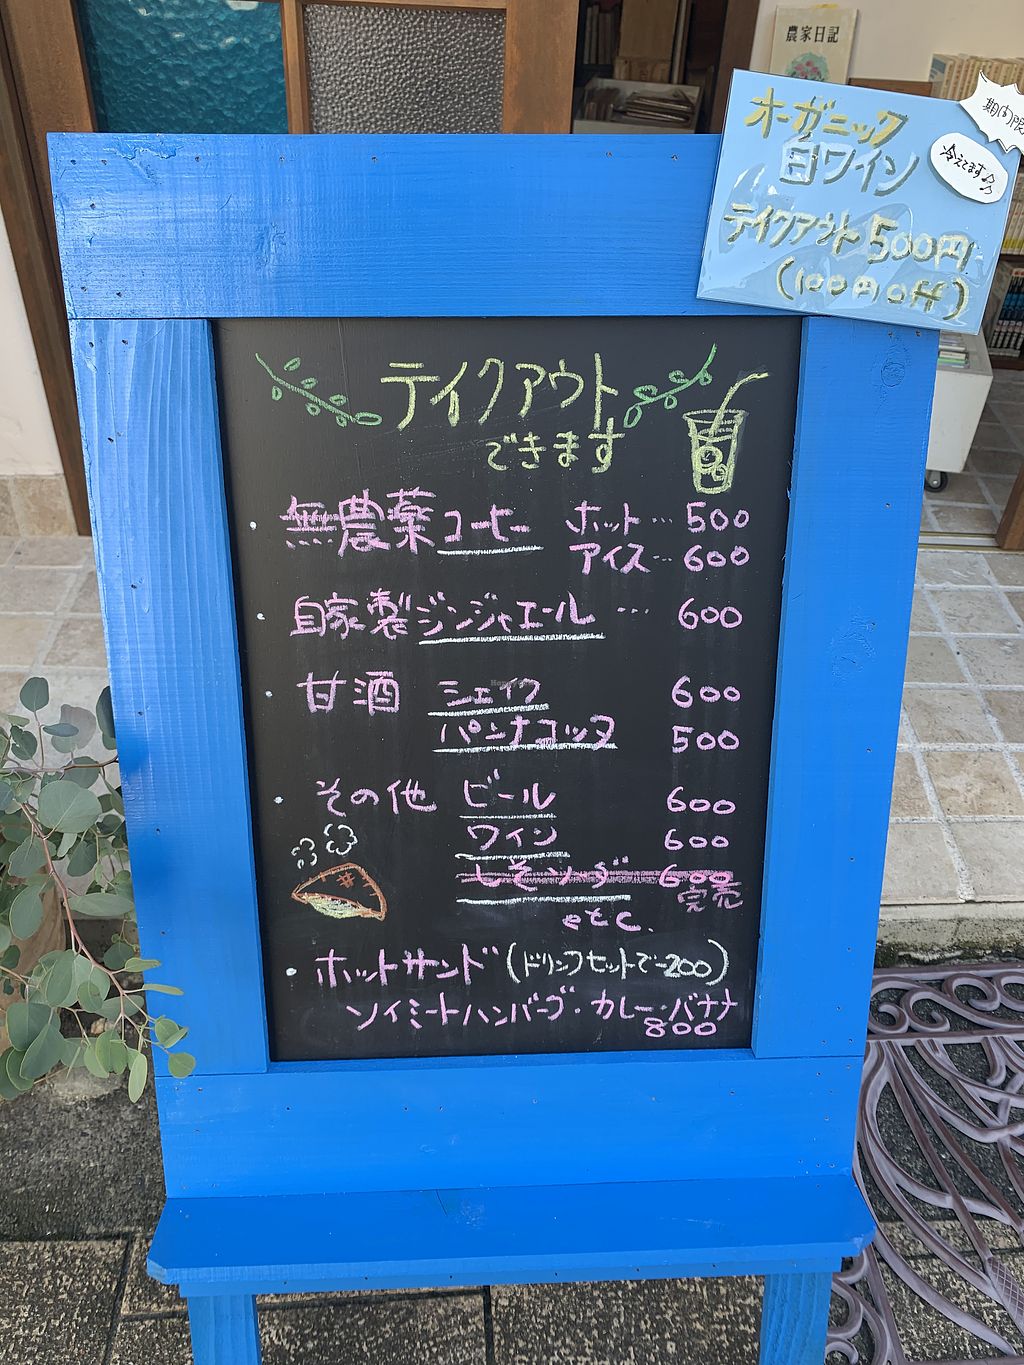 農家日記
オーガニック
白ワイン
期間限
冷えてます♪
テイクアウト 500円
(100円off)
テイクアウト
できます
無農薬コーヒー ホット… 500
アイス… 600
自家製ジンジャエール … 600
甘酒 シェイク 600
パンナコッタ 500
その他 ビール 600
ワイン 600
レモンソーダ 600
完売
etc.
・ホットサンド (ドリンクセットで-200)
ソイミートハンバーグ・カレー・バナナ
800